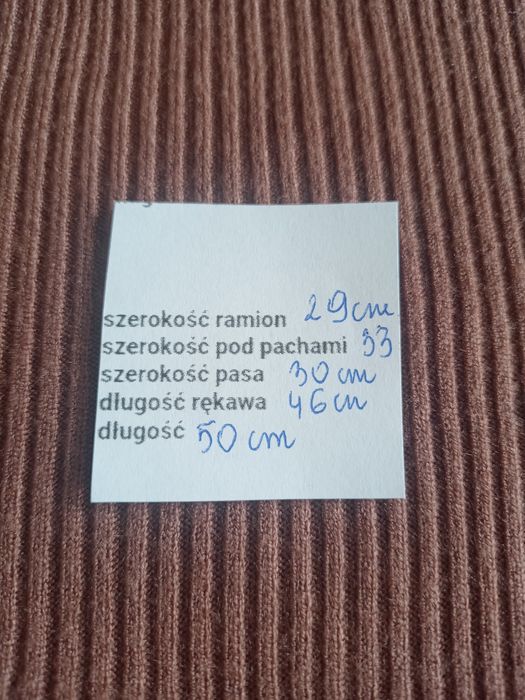 szerokość ramion 29cm
szerokość pod pachami 33
szerokość pasa 30 cm
długość rękawa 46cm
długość 50 cm